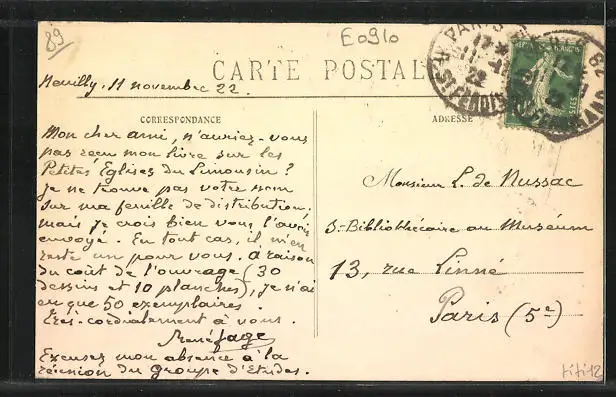 89
E0910
CARTE POSTAL
Neuilly, 11 novembre 22.
CORRESPONDANCE
Mon cher ami, n'auriez-vous
pas reçu mon livre sur les
Petites Eglises du Limousin ?
Je ne trouve pas votre nom
sur ma feuille de distribution,
mais je crois bien vous l'avoir
envoyé. En tout cas, il m'en
reste un pour vous. A raison
du coût de l'ouvrage (30
dessins et 10 planches), je n'ai
eu que 50 exemplaires.
Très-cordialement à vous.
René Fage
Excusez mon absence à la
réunion du Groupe d'Etudes.
ADRESSE
Monsieur L. de Nussac
S.-Bibliothécaire au Muséum
13, rue Linné
Paris (5e)
PARIS
17
11 - 11
22
ST FERDINAND